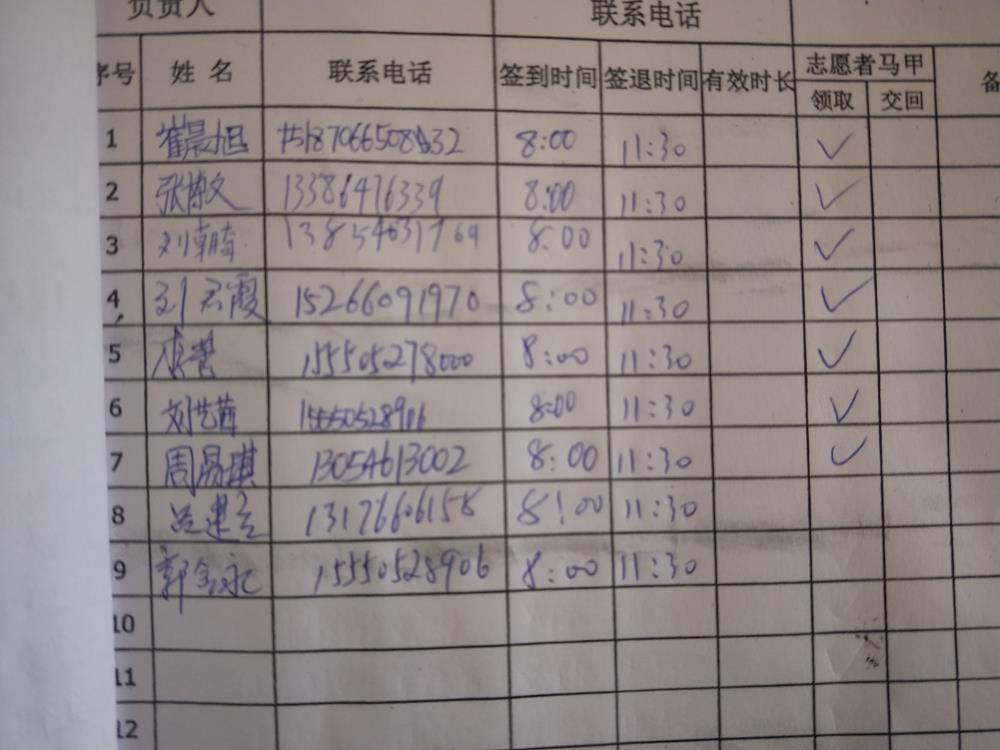 负责人 联系电话
序号 姓名 联系电话 签到时间 签退时间 有效时长 志愿者马甲 备
领取 交回
1 崔晨旭 8:00 11:30 ✓
2 张博文 13386476339 8:00 11:30 ✓
3 刘朝 13854631769 8:00 11:30 ✓
4 刘云霞 15266091970 8:00 11:30 ✓
5 155505278000 8:00 11:30 ✓
6 刘艺萍 15550528906 8:00 11:30 ✓
7 周易琪 13054613002 8:00 11:30 ✓
8 吴建云 13176606158 8:00 11:30
9 郭金永 15550528906 8:00 11:30
10
11
12